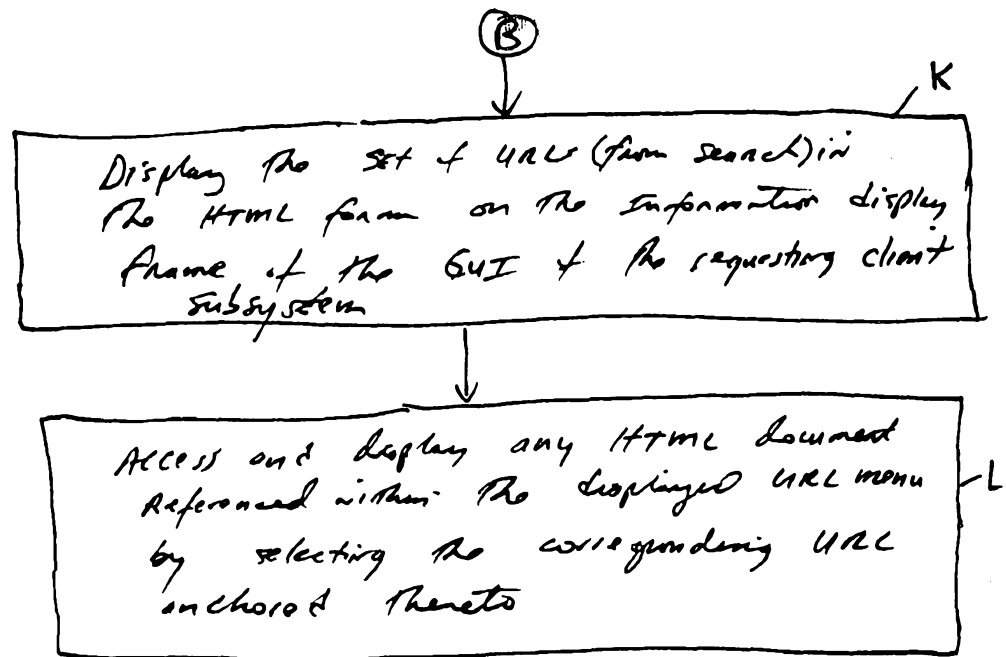 B
K
Display the set of URLs (from search) in
the HTML form on the Information display
frame of the GUI of the requesting client
subsystem
Access and display any HTML document
Referenced within the displayed URL menu
L
by selecting the corresponding URL
anchored thereto